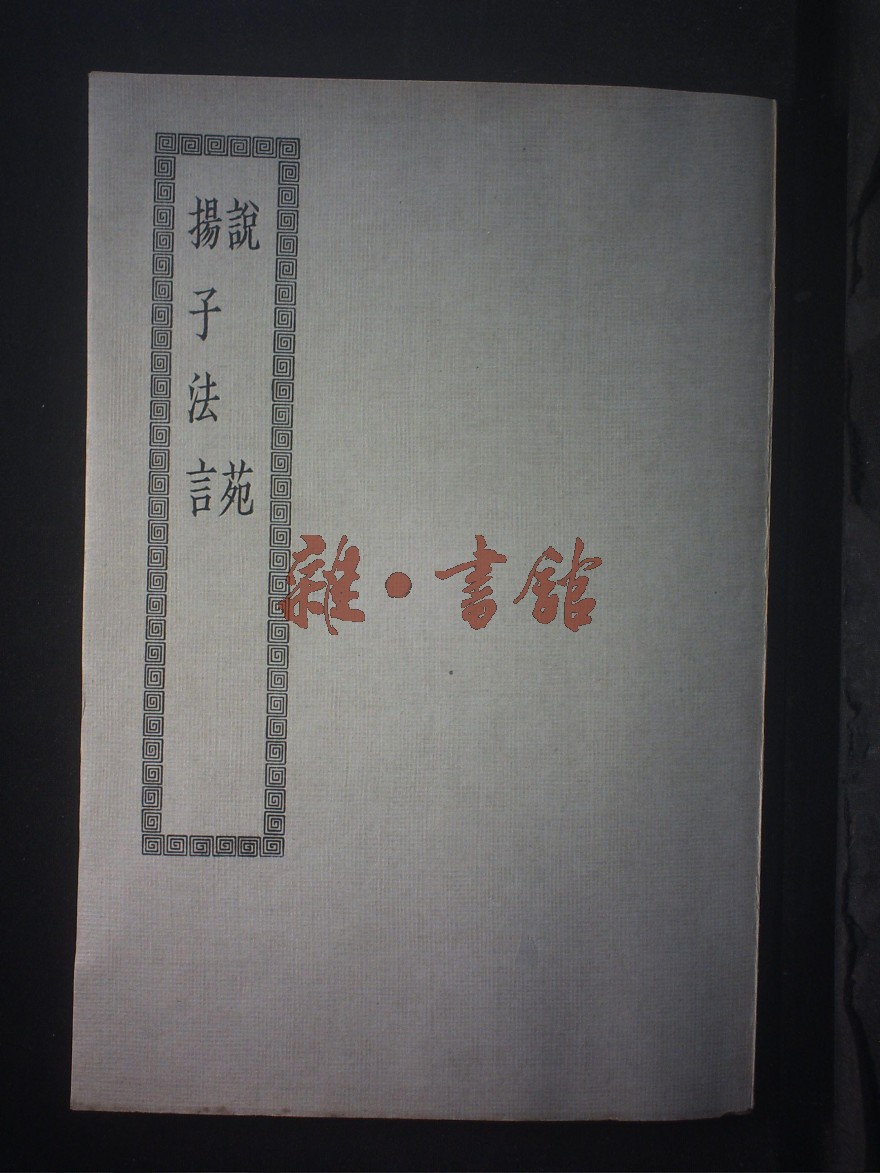 說苑
揚子法言
雜·書館